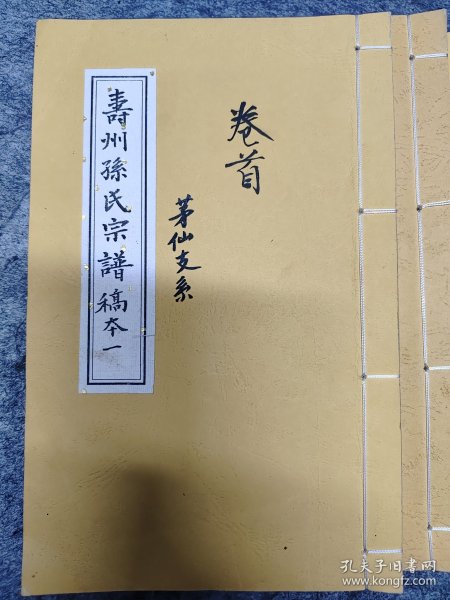 卷首
茅仙支系
壽州孫氏宗譜稿本一
孔夫子旧书网
www.kongfz.com